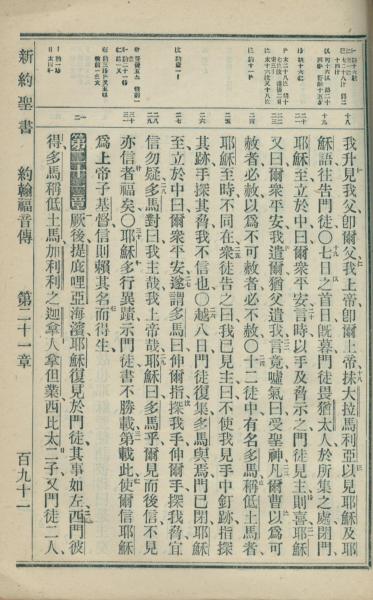 新約聖書
約翰福音傳
第二十一章
百九十一
我升見我父卽爾父我上帝卽爾上帝抹大拉馬利亞以見耶穌及耶
穌語往告門徒〇七日之首日旣暮門徒畏猶太人於所集之處閉門
耶穌至立於中曰爾衆平安言時以手及脅示之門徒見主則喜耶穌
又曰爾衆平安我遣爾猶父遣我言竟噓氣曰受聖神凡爾曹以爲可
赦者必赦以爲不可赦者必不赦〇十二徒中有名多馬稱低土馬者
耶穌至時不同在衆徒告之曰我已見主曰不使我見手中釘跡指探
其跡手探其脅我不信也〇越八日門徒復集多馬與焉門已閉耶穌
至立於中曰爾衆平安遂謂多馬曰伸爾指探我手伸爾手探我脅宜
信勿疑多馬對曰我主哉我上帝哉耶穌曰多馬乎爾見而後信不見
亦信者福矣〇耶穌多行異蹟示門徒書不勝載第載此使爾信耶穌
爲上帝子基督信則賴其名而得生
第二十一章 厥後提庇哩亞海濱耶穌復見於門徒其事如左西門彼
得多馬稱低土馬加利利之迦拿人拿但業西比太二子又門徒二人